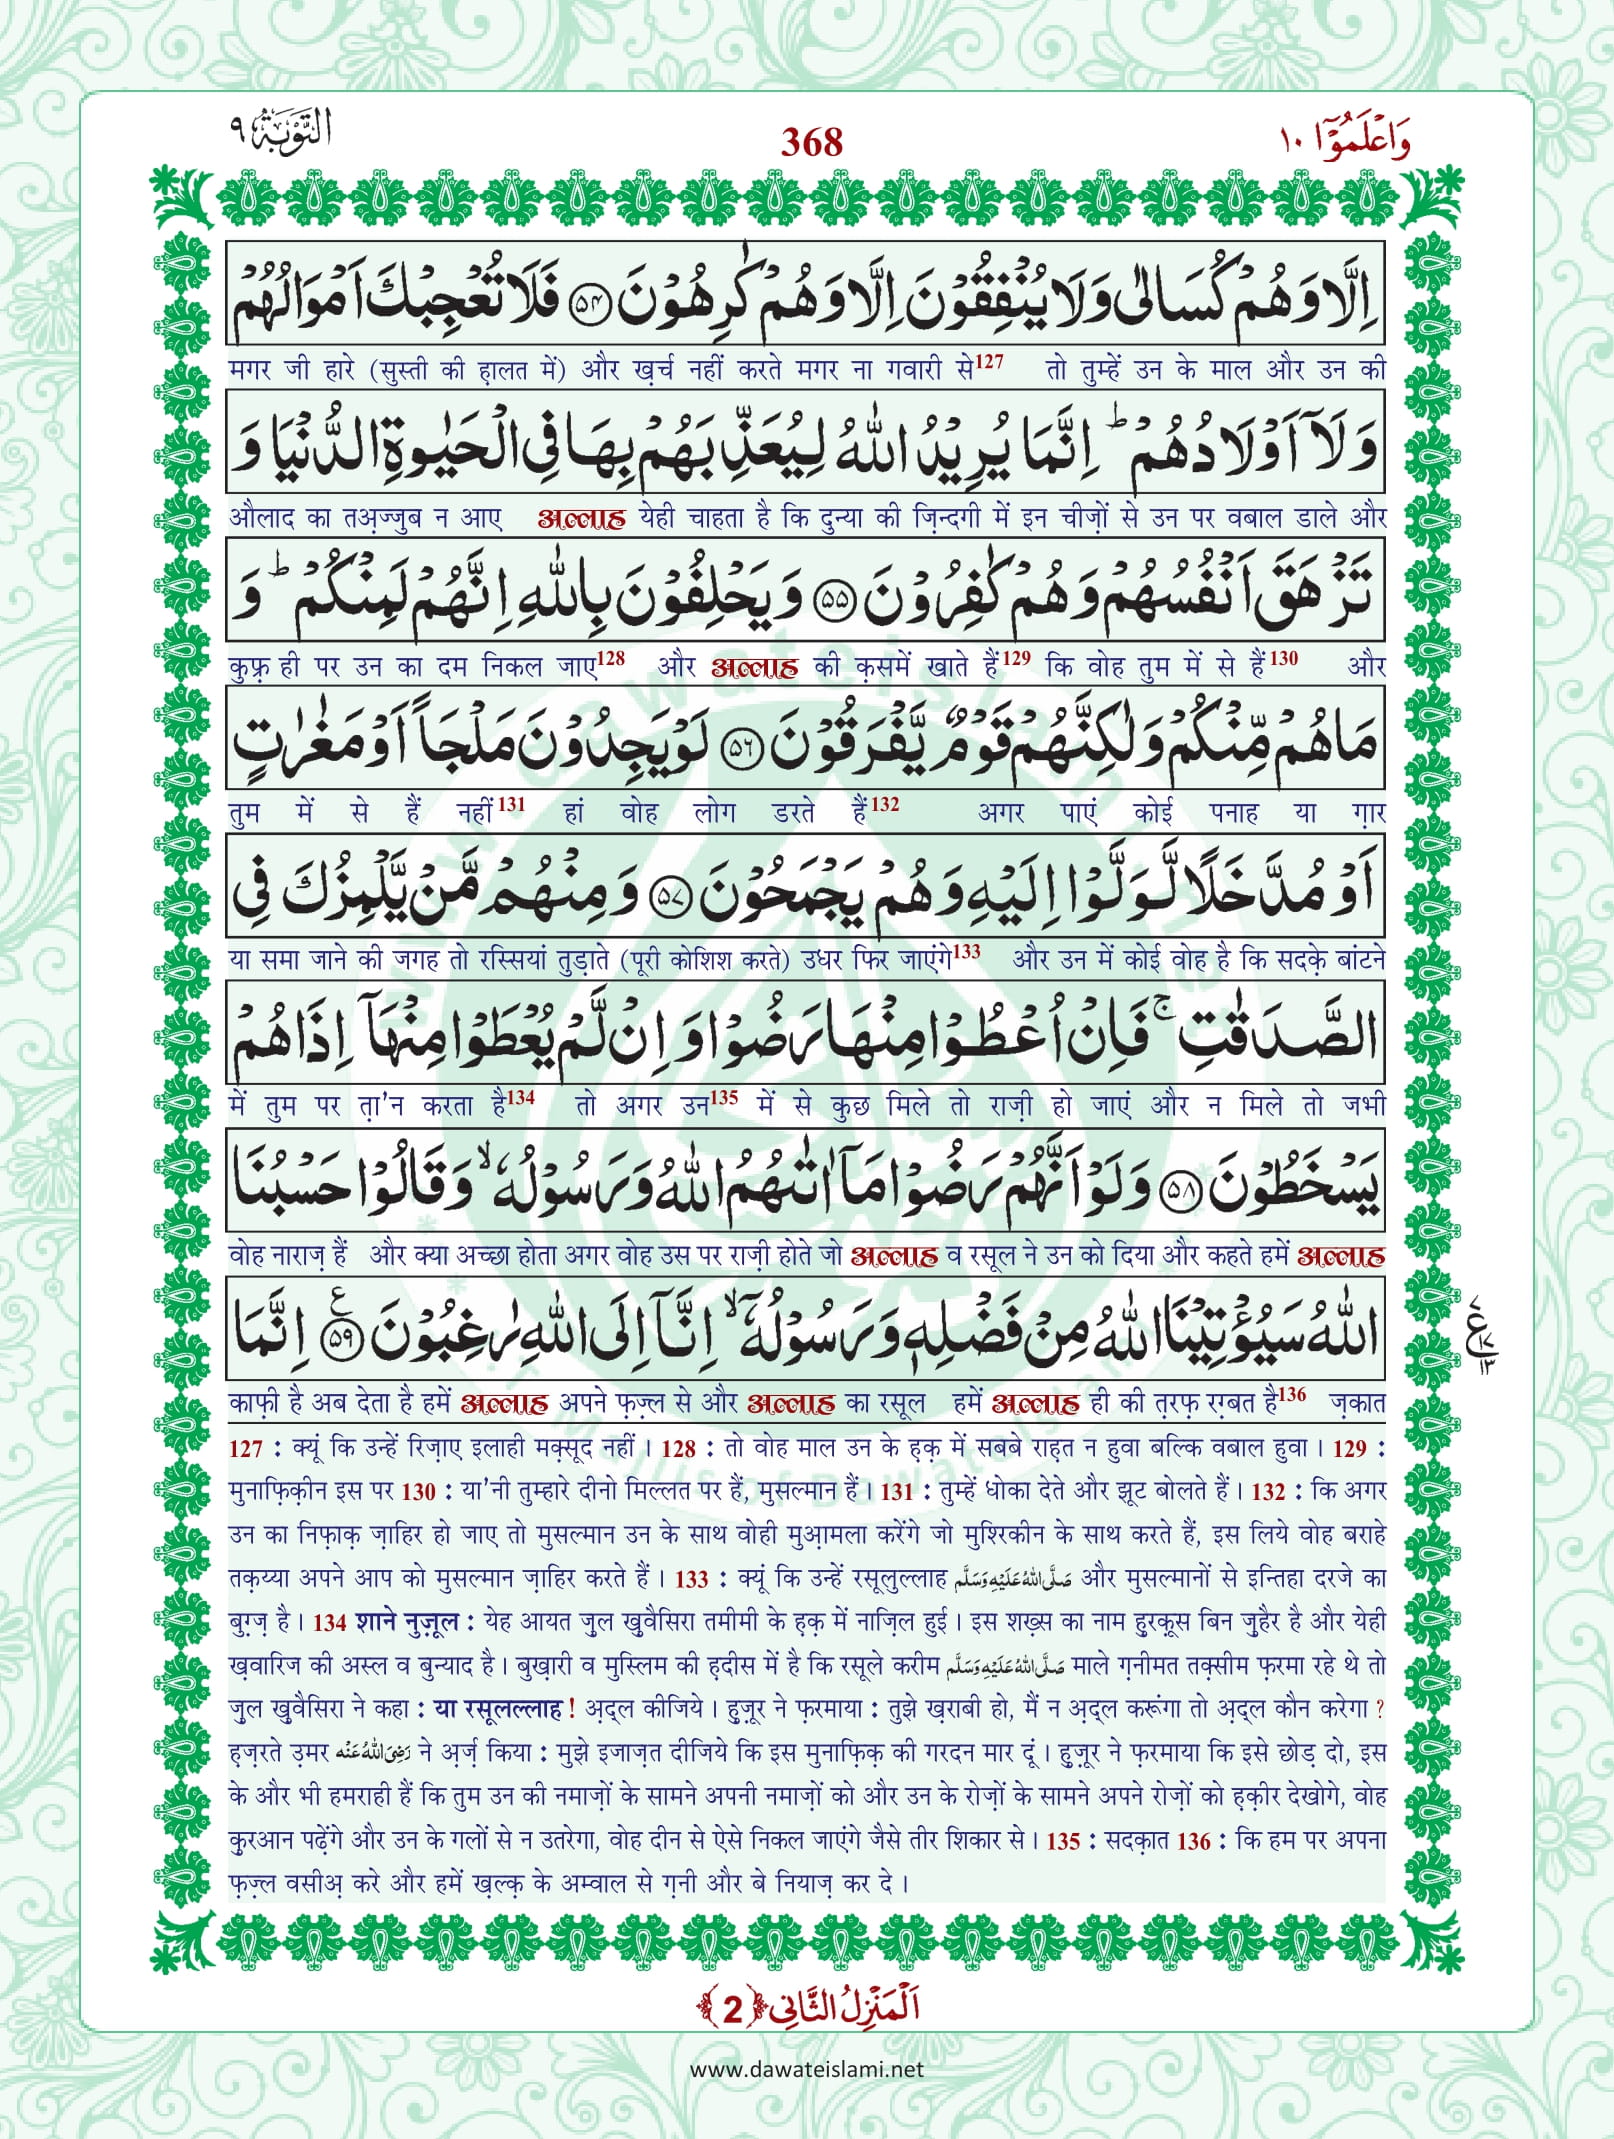 وَاعْلَمُوْۤا ۱۰
368
التَّوْبَة ۹
اِلَّا وَهُمْ كُسَالٰى وَلَا یُنْفِقُوْنَ اِلَّا وَهُمْ كٰرِهُوْنَ ﴿۵۴﴾ فَلَا تُعْجِبْكَ اَمْوَالُهُمْ
मगर जी हारे (सुस्ती की ह़ालत में) और ख़र्च नहीं करते मगर ना गवारी से127 तो तुम्हें उन के माल और उन की
وَلَاۤ اَوْلَادُهُمْ ؕ اِنَّمَا یُرِیْدُ اللّٰهُ لِیُعَذِّبَهُمْ بِهَا فِی الْحَیٰوةِ الدُّنْیَا وَ
औलाद का तअ़ज्जुब न आए अल्लाह येही चाहता है कि दुन्या की ज़िन्दगी में इन चीज़ों से उन पर वबाल डाले और
تَزْهَقَ اَنْفُسُهُمْ وَهُمْ كٰفِرُوْنَ ﴿۵۵﴾ وَیَحْلِفُوْنَ بِاللّٰهِ اِنَّهُمْ لَمِنْكُمْ ؕ وَ
कुफ़्र ही पर उन का दम निकल जाए128 और अल्लाह की क़समें खाते हैं129 कि वोह तुम में से हैं130 और
مَا هُمْ مِّنْكُمْ وَلٰكِنَّهُمْ قَوْمٌ یَّفْرَقُوْنَ ﴿۵۶﴾ لَوْ یَجِدُوْنَ مَلْجَاً اَوْ مَغٰرٰتٍ
तुम में से हैं नहीं131 हां वोह लोग डरते हैं132 अगर पाएं कोई पनाह या ग़ार
اَوْ مُدَّخَلًا لَّوَلَّوْا اِلَیْهِ وَهُمْ یَجْمَحُوْنَ ﴿۵۷﴾ وَمِنْهُمْ مَّنْ یَّلْمِزُكَ فِی
या समा जाने की जगह तो रस्सियां तुड़ाते (पूरी कोशिश करते) उधर फिर जाएंगे133 और उन में कोई वोह है कि सदक़े बांटने
الصَّدَقٰتِ ۚ فَاِنْ اُعْطُوْا مِنْهَا رَضُوْا وَ اِنْ لَّمْ یُعْطَوْا مِنْهَاۤ اِذَا هُمْ
में तुम पर त़ा'न करता है134 तो अगर उन135 में से कुछ मिले तो राज़ी हो जाएं और न मिले तो जभी
یَسْخَطُوْنَ ﴿۵۸﴾ وَلَوْ اَنَّهُمْ رَضُوْا مَاۤ اٰتٰىهُمُ اللّٰهُ وَرَسُوْلُهٗ ۙ وَقَالُوْا حَسْبُنَا
वोह नाराज़ हैं और क्या अच्छा होता अगर वोह उस पर राज़ी होते जो अल्लाह व रसूल ने उन को दिया और कहते हमें अल्लाह
اللّٰهُ سَیُؤْتِیْنَا اللّٰهُ مِنْ فَضْلِهٖ وَرَسُوْلُهٗۤ ۙ اِنَّاۤ اِلَى اللّٰهِ رٰغِبُوْنَ ﴿۵۹﴾ ع اِنَّمَا
ع ۷ ۱۳
काफ़ी है अब देता है हमें अल्लाह अपने फ़ज़्ल से और अल्लाह का रसूल हमें अल्लाह ही की त़रफ़ रग़्बत है136 ज़कात
127 : क्यूं कि उन्हें रिज़ाए इलाही मक़्सूद नहीं । 128 : तो वोह माल उन के ह़क़ में सबबे राह़त न हुवा बल्कि वबाल हुवा । 129 :
मुनाफ़िक़ीन इस पर 130 : या'नी तुम्हारे दीनो मिल्लत पर हैं, मुसल्मान हैं । 131 : तुम्हें धोका देते और झूट बोलते हैं । 132 : कि अगर
उन का निफ़ाक़ ज़ाहिर हो जाए तो मुसल्मान उन के साथ वोही मुआ़मला करेंगे जो मुश्रिकीन के साथ करते हैं, इस लिये वोह बराहे
तक़य्या अपने आप को मुसल्मान ज़ाहिर करते हैं । 133 : क्यूं कि उन्हें रसूलुल्लाह صَلَّى اللهُ عَلَيْهِ وَسَلَّم और मुसल्मानों से इन्तिहा दरजे का
बुग़्ज़ है । 134 शाने नुज़ूल : येह आयत जुल खुवैसिरा तमीमी के ह़क़ में नाज़िल हुई । इस शख़्स का नाम हुरक़ूस बिन जुहैर है और येही
ख़वारिज की अस्ल व बुन्याद है । बुख़ारी व मुस्लिम की ह़दीस में है कि रसूले करीम صَلَّى اللهُ عَلَيْهِ وَسَلَّم माले ग़नीमत तक़्सीम फ़रमा रहे थे तो
जुल खुवैसिरा ने कहा : या रसूलल्लाह ! अ़द्ल कीजिये । हुज़ूर ने फ़रमाया : तुझे ख़राबी हो, मैं न अ़द्ल करूंगा तो अ़द्ल कौन करेगा ?
ह़ज़रते उ़मर رَضِیَ اللهُ عَنْه ने अ़र्ज़ किया : मुझे इजाज़त दीजिये कि इस मुनाफ़िक़ की गरदन मार दूं । हुज़ूर ने फ़रमाया कि इसे छोड़ दो, इस
के और भी हमराही हैं कि तुम उन की नमाज़ों के सामने अपनी नमाज़ों को और उन के रोज़ों के सामने अपने रोज़ों को ह़क़ीर देखोगे, वोह
क़ुरआन पढ़ेंगे और उन के गलों से न उतरेगा, वोह दीन से ऐसे निकल जाएंगे जैसे तीर शिकार से । 135 : सदक़ात 136 : कि हम पर अपना
फ़ज़्ल वसीअ़ करे और हमें ख़ल्क़ के अम्वाल से ग़नी और बे नियाज़ कर दे ।
اَلْمَنْزِلُ الثَّانِی ﴿2﴾
www.dawateislami.net